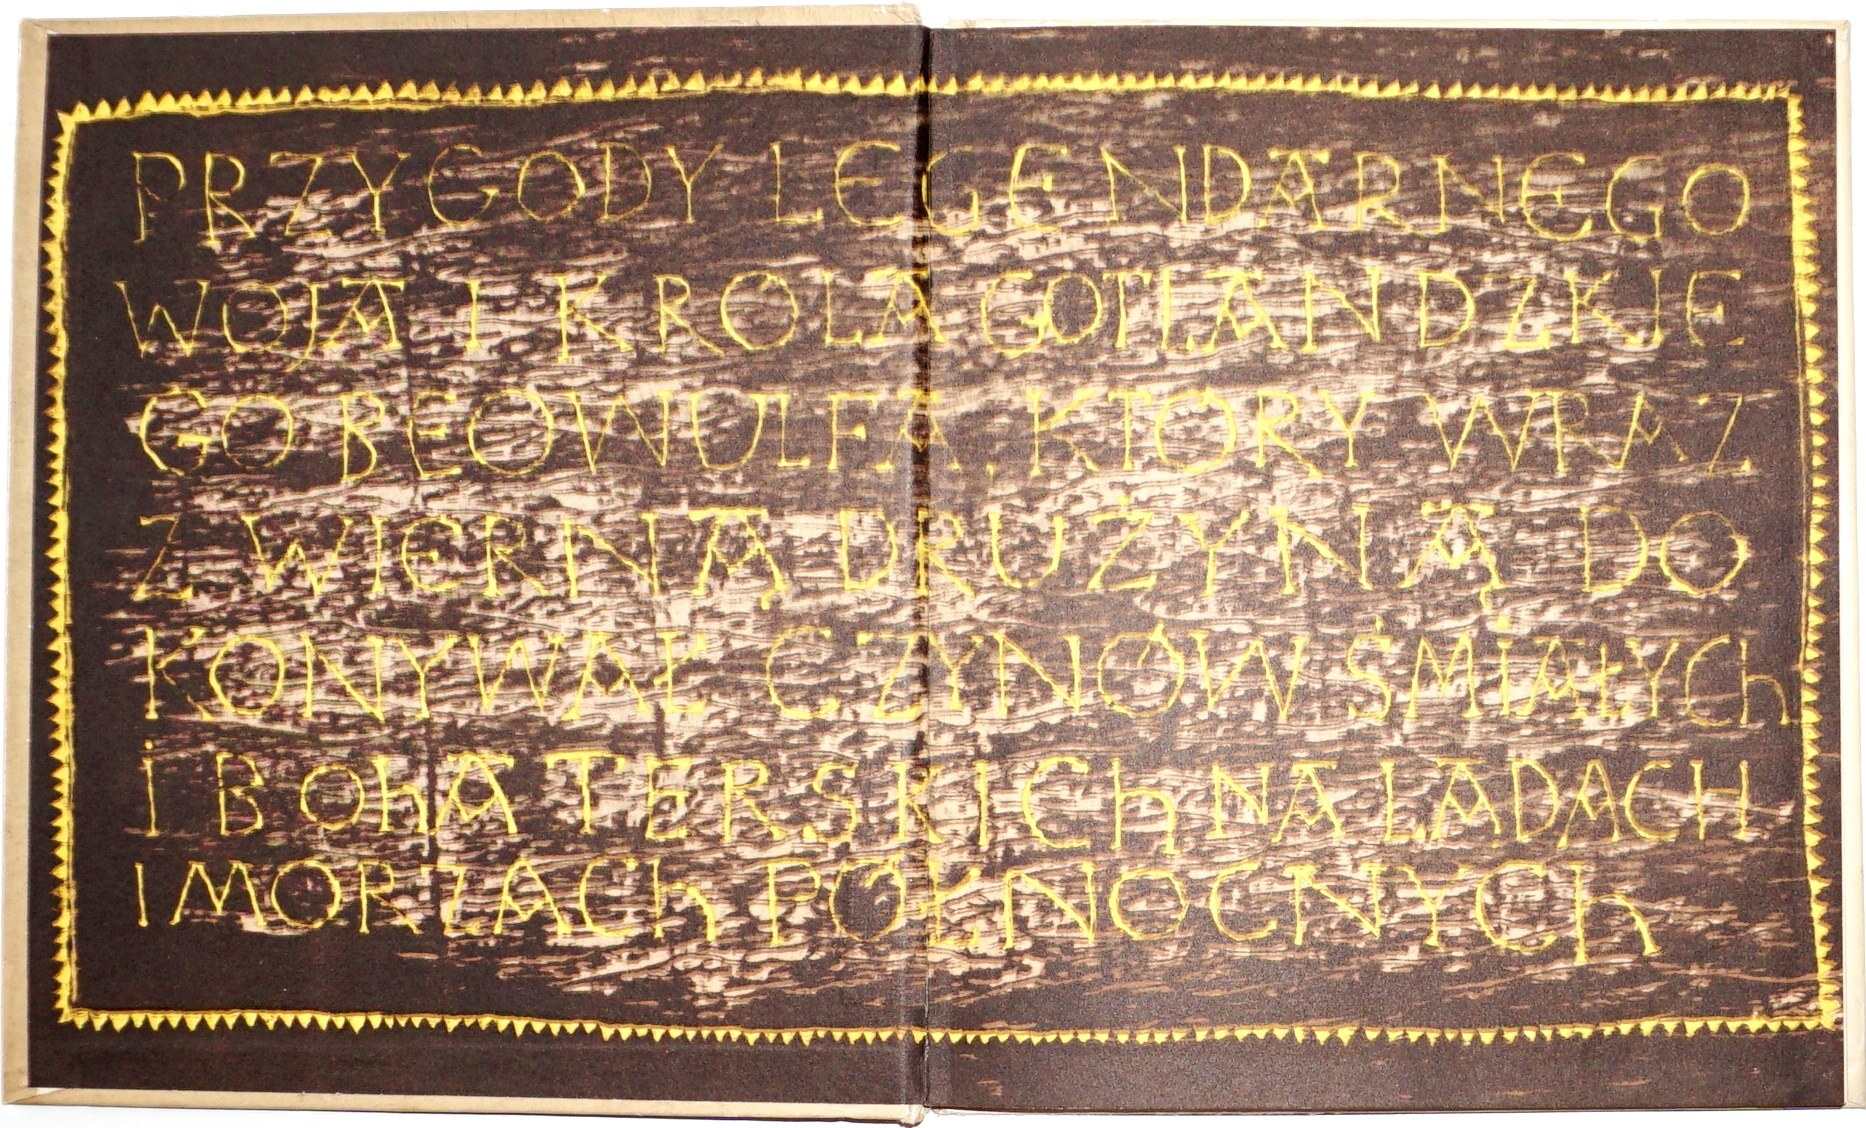 PRZYGODY LEGENDARNEGO
WOJA I KRÓLA GOTLANDZKIE
GO BEOWULFA, KTÓRY WRAZ
Z WIERNĄ DRUŻYNĄ DO
KONYWAŁ CZYNÓW ŚMIAŁYCh
i BOhATERSKICh NA LĄDACH
I MORZACh PÓŁNOCNYCh